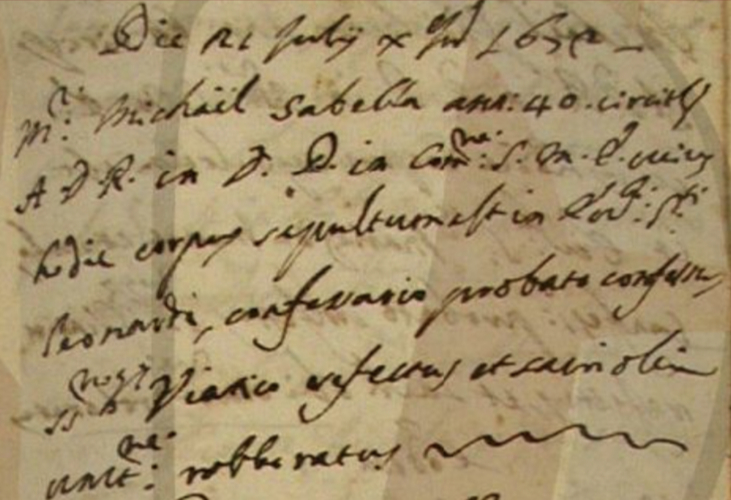 Die 21 Julij x Ind 1672
Mr: Michaël Sabella ann: 40. circiter
A D R. in D. D. in Comne: S. M. E. cuius
hodie corpus sepultum est in Sti
Leonardi, confessario probato confessus,
SS Viatico refectus et sacri olei
unctne: robboratus